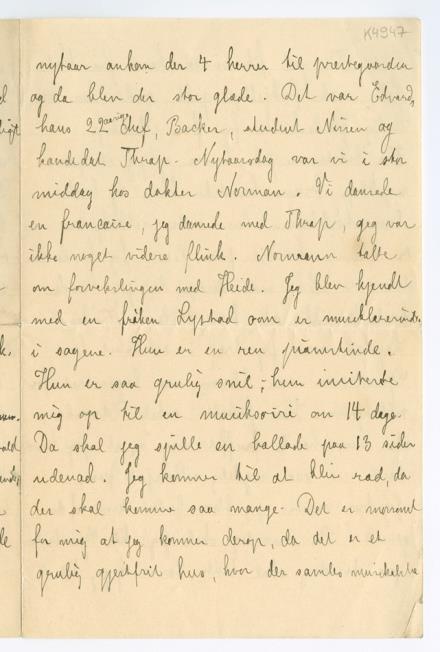 K4947
nytaar ankom der 4 herrer til prestegaarden
og da blev der stor glæde. Det var Edvard,
hans 22 aarige Chef, Backer, student Nissen og
kandidat Thrap. Nytaarsdag var vi i stor
middag hos doktor Norman. Vi dansede
en francaise, jeg dansede med Thrap, jeg var
ikke noget videre flink. Normann talte
om forvekslingen med Heide. Jeg blev kjendt
med en frøken Lystad som er musiklærerinde
i sagene. Hun er en ren pianistinde.
Hun er saa grulig snil, hun inviterte
mig op til en musiksoiré om 14 dage.
Da skal jeg spille en ballade paa 13 sider
udenad. Jeg kommer til at bli rad, da
der skal komme saa mange. Det er morsomt
for mig at jeg kommer derop, da det er et
grulig gjestfrit hus, hvor der samles musikalske